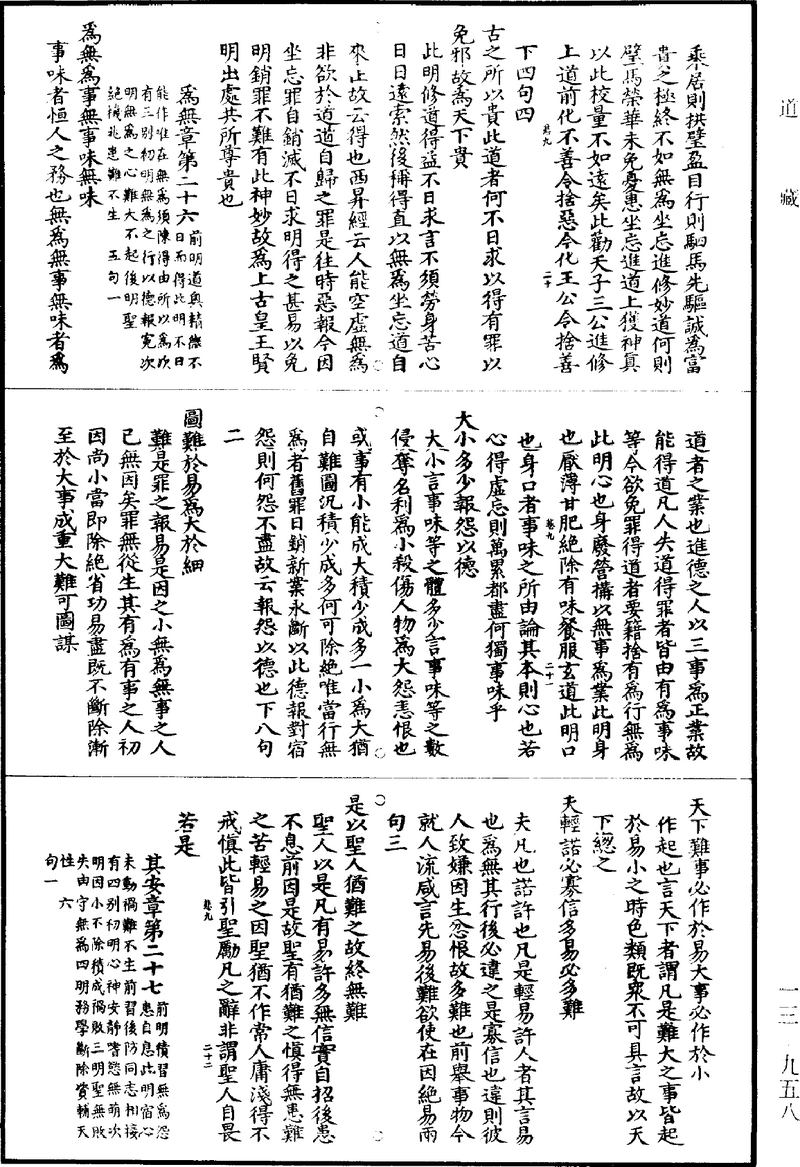 道藏
乘居則拱璧盈目行則駟馬先驅誠為富
貴之極終不如無為坐忘進修妙道何則
璧馬榮華未免憂患坐忘進道上獲神真
以此校量不如遠矣此勸天子三公進修
上道前化不善令捨惡今化王公令捨善
卷九
二十
下四句四
古之所以貴此道者何不日求以得有罪以
免邪故為天下貴
此明修道得益不日求言不須勞身苦心
日日遠索然後稱得直以無為坐忘道自
來止故云得也西昇經云人能空虛無為
非欲於道道自歸之罪是往時惡報今因
坐忘罪自銷滅不日求明得之甚易以免
明銷罪不難有此神妙故為上古皇王賢
明出處共所尊貴也
為無章第二十六
前明道與精微不
日而得此明不日
能作唯在無為須陳得由所以為次
有三別初明無為之行以德報冤次
明無為之心難大不起後明聖
絕機兆患難不生 五句一
為無為事無事味無味
事味者恒人之務也無為無事無味者為
道者之業也進德之人以三事為正業故
能得道凡人失道得罪者皆由有為事味
等今欲免罪得道者要籍捨有為行無為
此明心也身廢營構以無事為業此明身
也厭薄甘肥絕除有味餐服玄道此明口
卷九
二十一
也身口者事味之所由論其本則心也若
心得虛忘則萬累都盡何獨事味乎
大小多少報怨以德
大小言事味等之體多少言事味等之數
侵奪名利為小殺傷人物為大怨恚恨也
或事有小能成大積少成多一小為大猶
自難圖況積少成多何可除絕唯當行無
為者舊罪日銷新業永斷以此德報對宿
怨則何怨不盡故云報怨以德也下八句
二
圖難於易為大於細
難是罪之報易是因之小無為無事之人
已無因矣罪無從生其有為有事之人初
因尚小當即除絕省功易盡既不斷除漸
至於大事成重大難可圖謀
天下難事必作於易大事必作於小
作起也言天下者謂凡是難大之事皆起
於易小之時色類既眾不可具言故以天
下揔之
夫輕諾必寡信多易必多難
夫凡也諾許也凡是輕易許人者其言易
也為無其行後必違之是寡信也違則彼
人致嫌因生忿恨故多難也前舉事物今
就人流咸言先易後難欲使在因絕易兩
句三
是以聖人猶難之故終無難
聖人以是凡有易許多無信實自招後患
不息前因是故聖有猶難之慎得無患難
之苦輕易之因聖猶不作常人庸淺得不
戒慎此皆引聖勵凡之辭非謂聖人自畏
卷九
二十二
若是
其安章第二十七
前明積習無為怨
患自息此明宿心
未動禍難不生前習後防同志相接
有四別初明心神安靜嗜慾無萌次
明因小不除積成禍敗三明聖無敗
失由守無為四明務學斷除資輔天
性 六
句一
一三 九五八